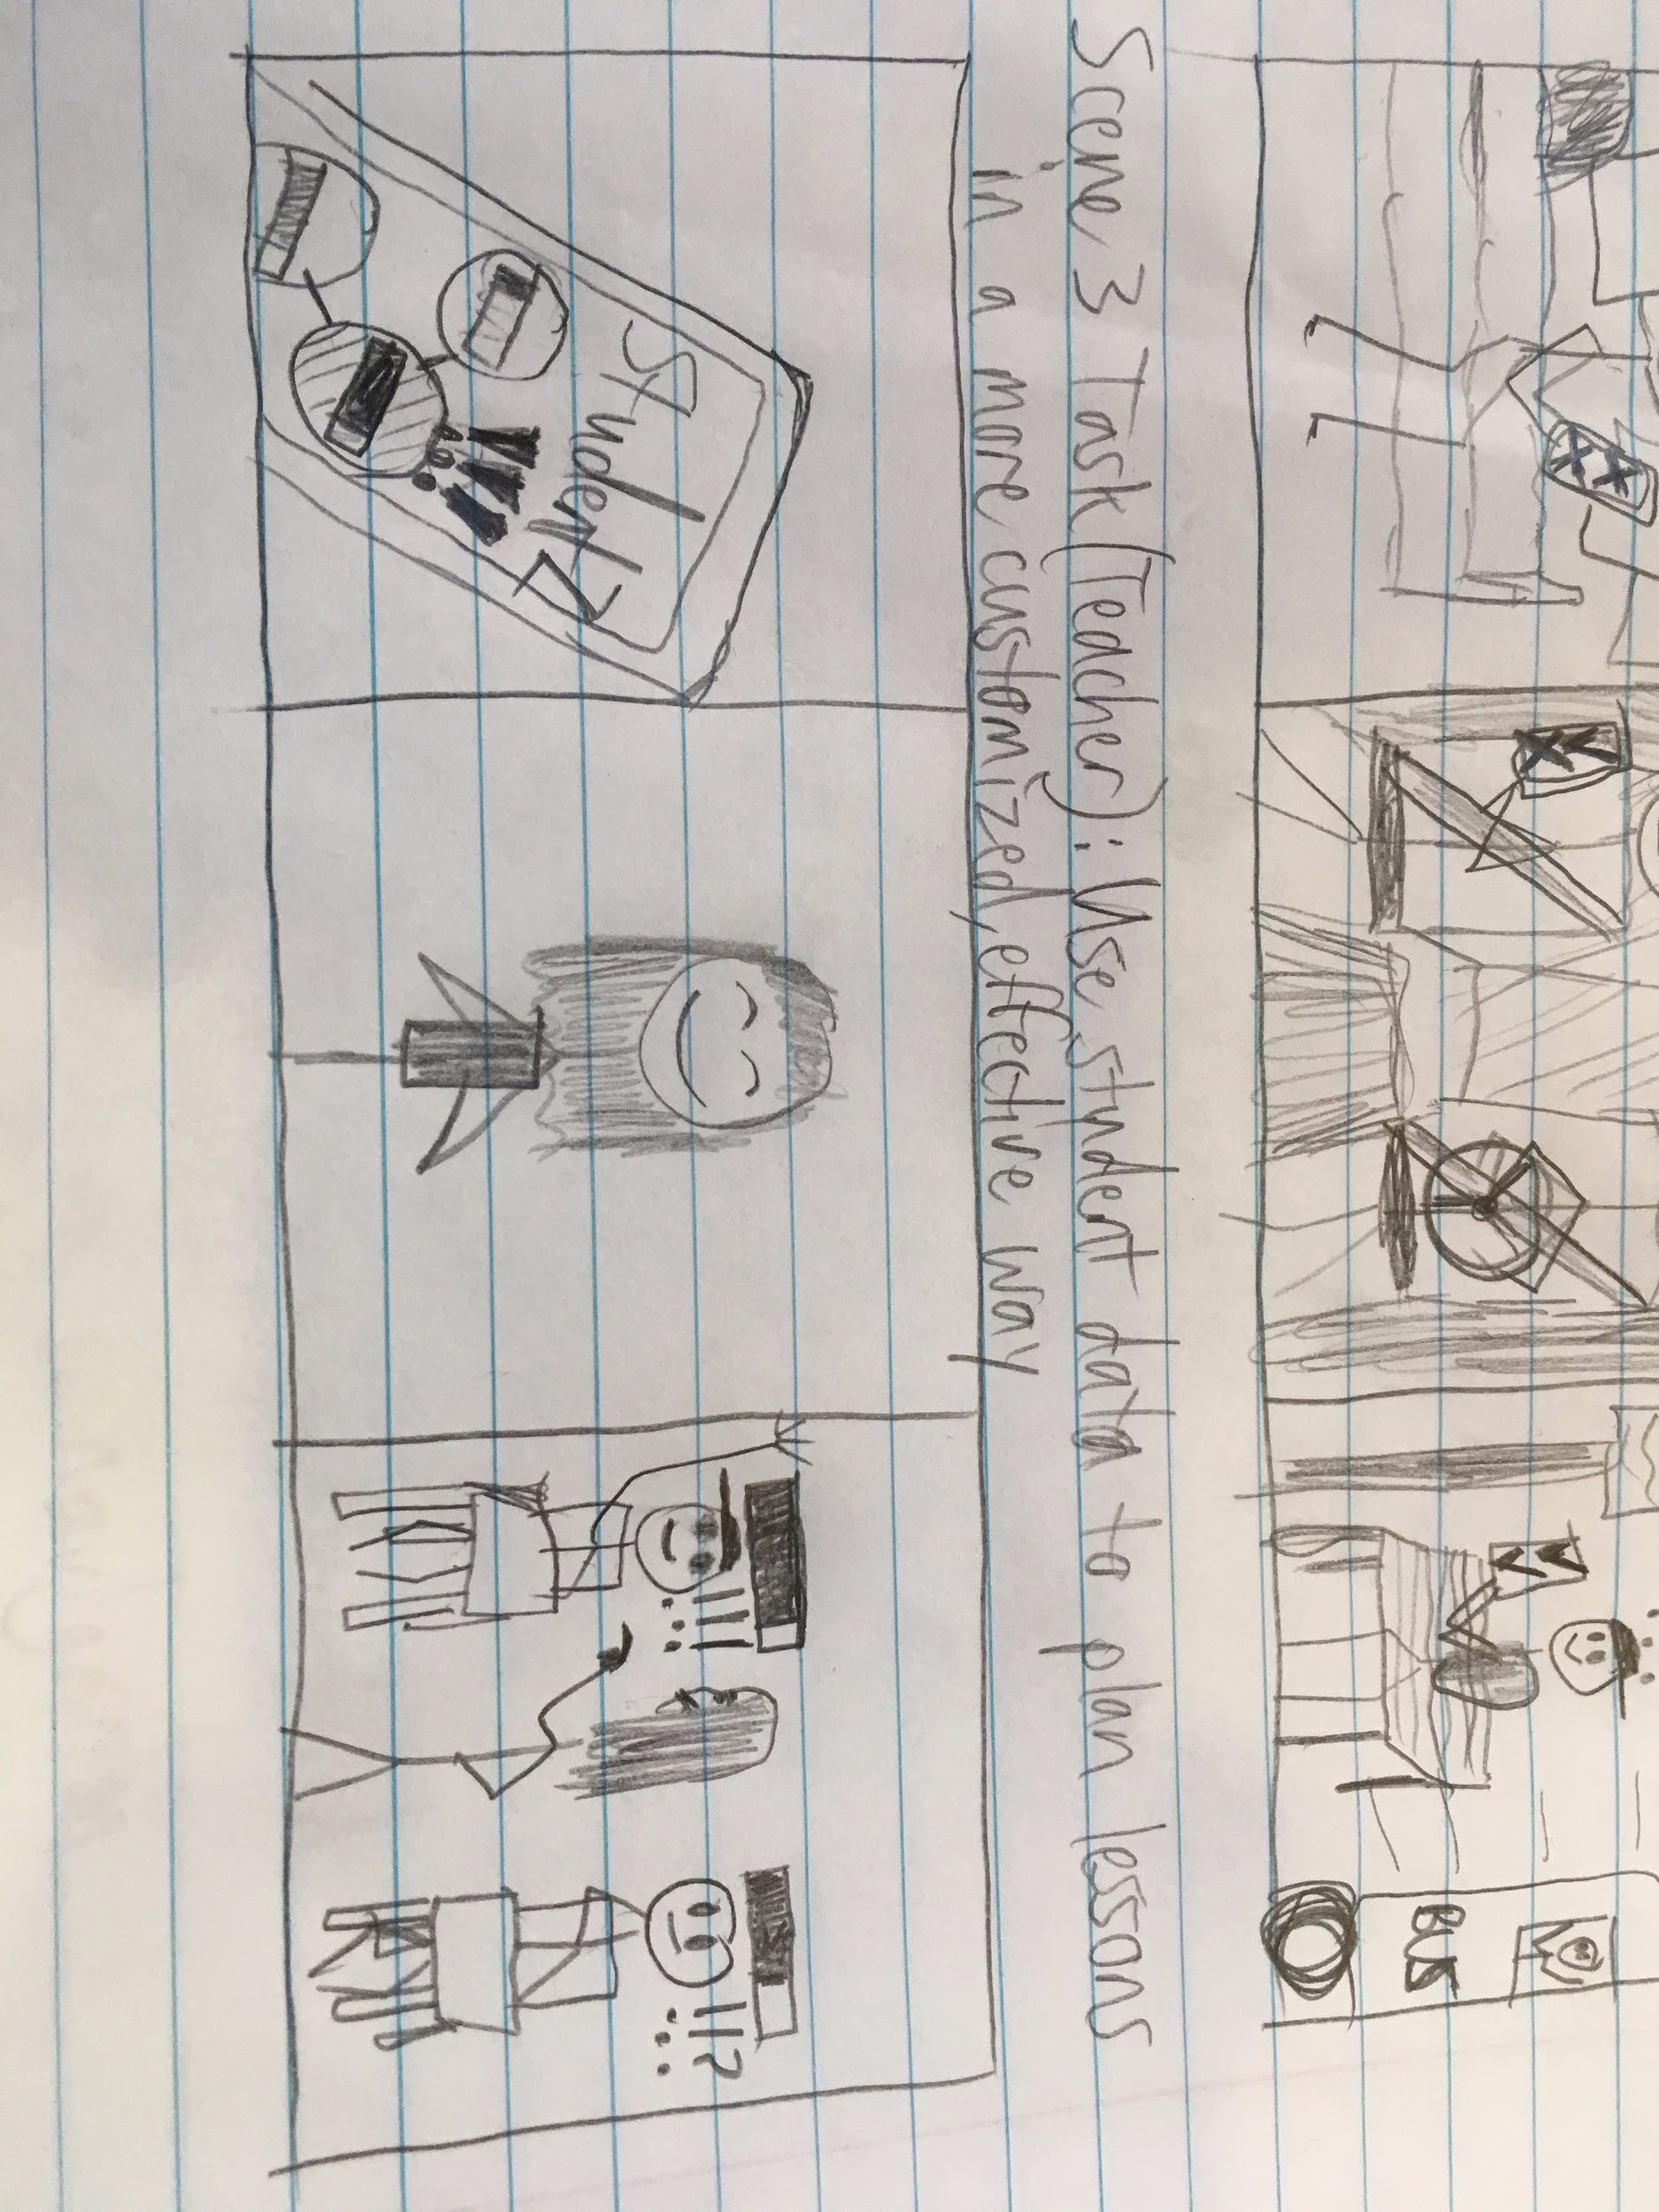 BUS
Scene 3 Task (Teacher): Use student data to plan lessons
in a more customized, effective way
Student Z
!!!
!!!
!!?